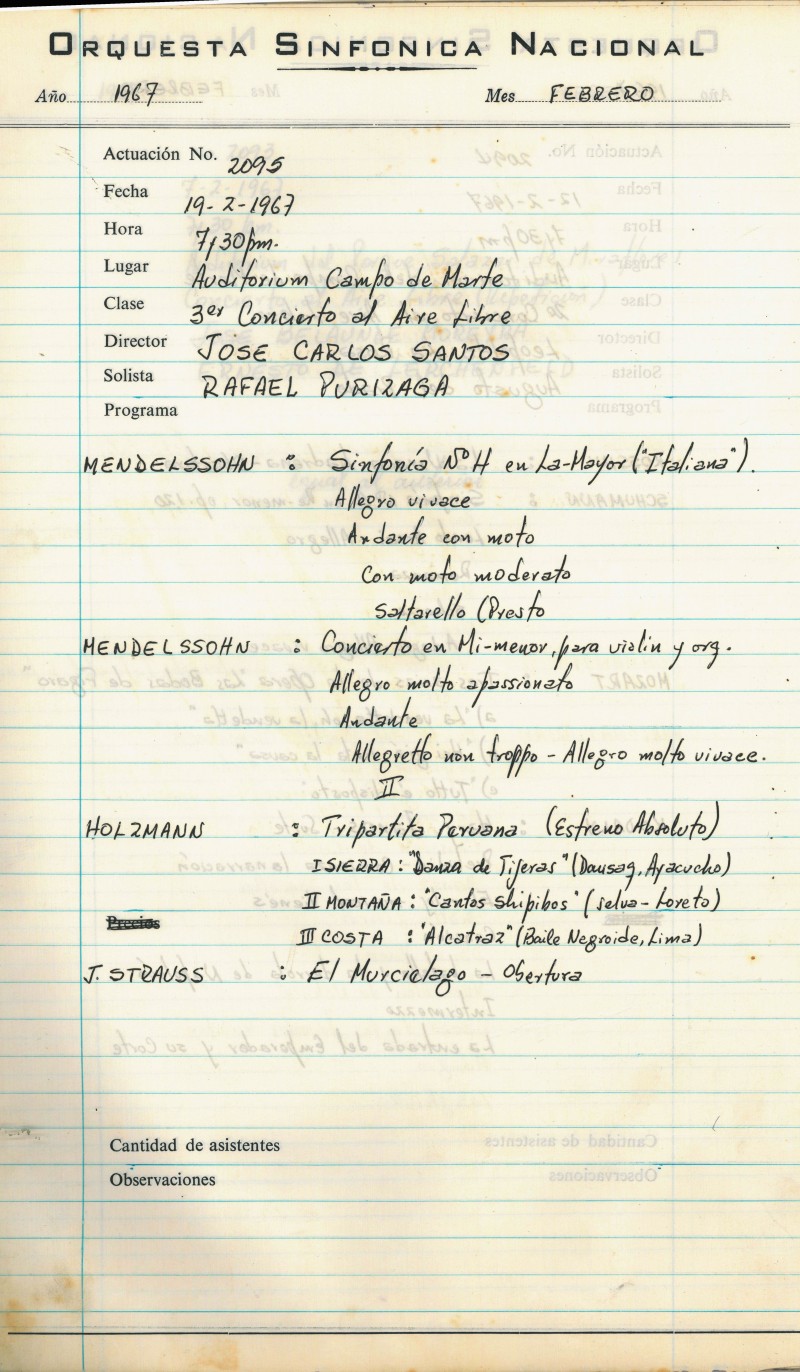 ORQUESTA SINFONICA NACIONAL
Año 1967 Mes FEBRERO
Actuación No. 2095
Fecha 19-2-1967
Hora 7,30pm.
Lugar Auditorium Campo de Marte
Clase 3er Concierto al Aire Libre
Director JOSE CARLOS SANTOS
Solista RAFAEL PURIZAGA
Programa
MENDELSSOHN : Sinfonía Nº 4 en La-Mayor ("Italiana").
Allegro vivace
Andante con moto
Con moto moderato
Saltarello (Presto
MENDELSSOHN : Concierto en Mi-menor, para violin y orq.
Allegro molto apassionato
Andante
Allegretto non troppo - Allegro molto vivace.
II
HOLZMANN : Tripartita Peruana (Estreno Absoluto)
I SIERRA : "Danza de Tijeras" (Dansaq, Ayacucho)
II MONTAÑA : "Cantos shipibos" (selva - Loreto)
Precios
III COSTA : "Alcatraz" (Baile Negroide, Lima)
J. STRAUSS : El Murcielago - Obertura
Cantidad de asistentes
Observaciones